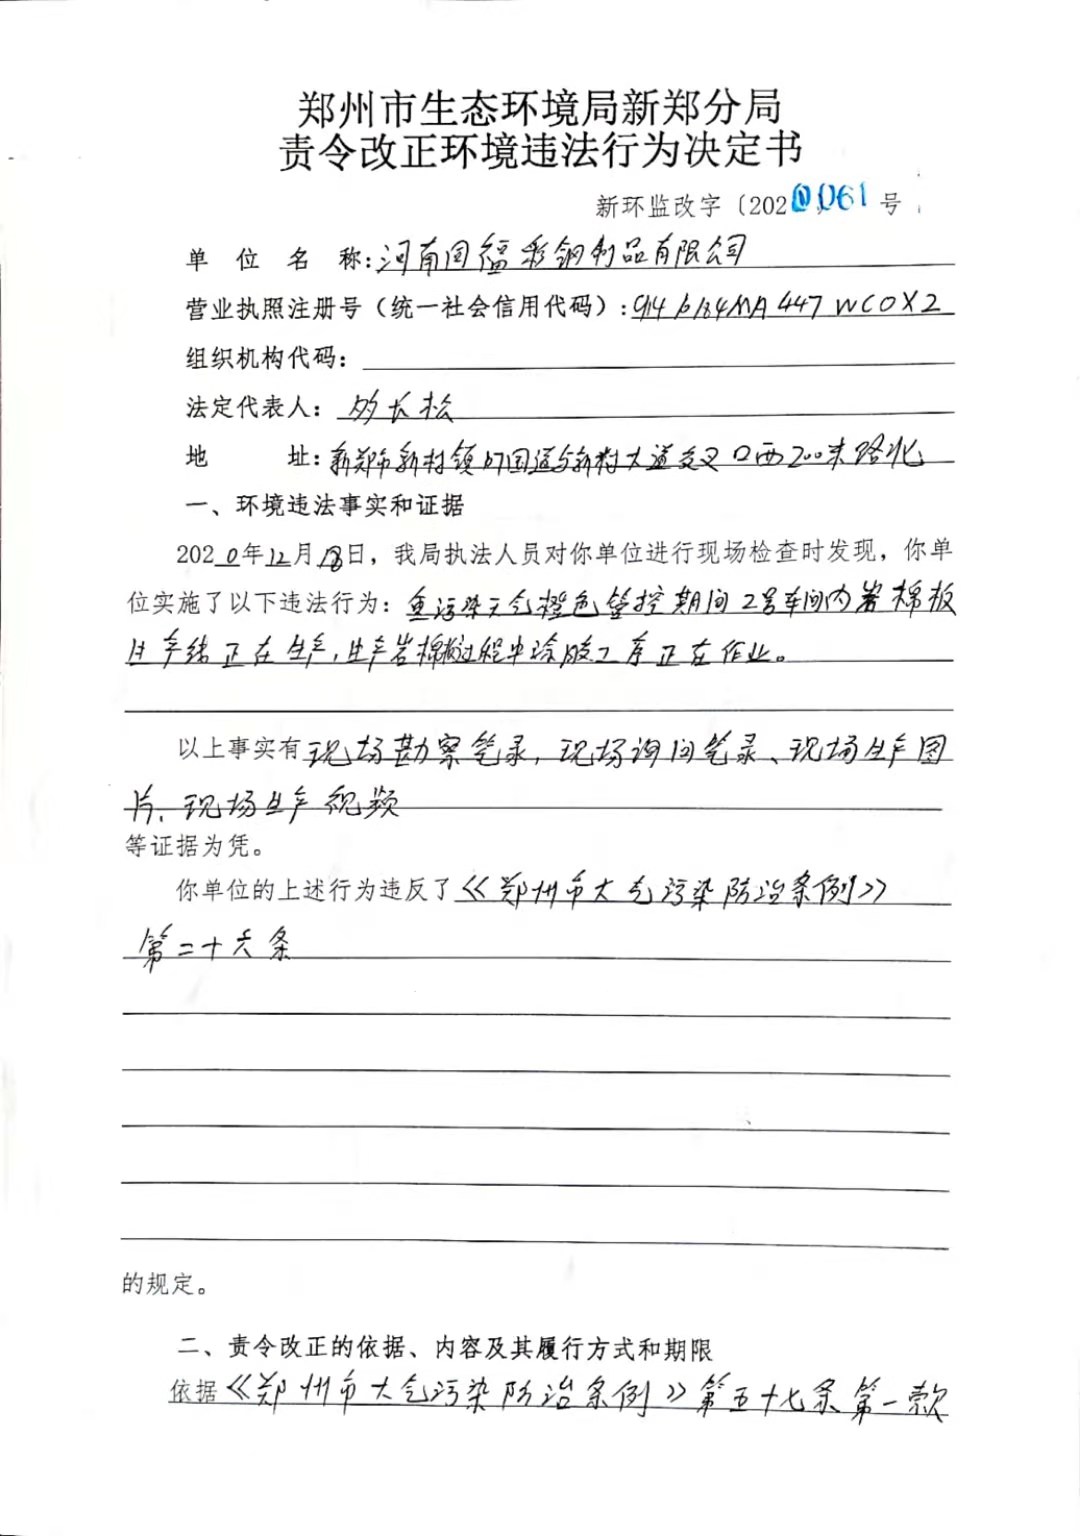 郑州市生态环境局新郑分局
责令改正环境违法行为决定书
新环监改字〔2020〕061号
单位名称:河南国蕴彩钢制品有限公司
营业执照注册号（统一社会信用代码）:914 10184MA 447 WC0X2
组织机构代码:
法定代表人: 长松
地址:新郑市新村镇107国道与新村大道交叉口西200米路北
一、环境违法事实和证据
2020年12月18日，我局执法人员对你单位进行现场检查时发现，你单
位实施了以下违法行为：重污染天气橙色管控期间2号车间内岩棉板
生产线正在生产,生产岩棉板过程中涂胶工序正在作业。
以上事实有现场勘察笔录,现场询问笔录、现场生产图
片、现场生产视频
等证据为凭。
你单位的上述行为违反了《郑州市大气污染防治条例》
第二十六条
的规定。
二、责令改正的依据、内容及其履行方式和期限
依据《郑州市大气污染防治条例》第五十七条第一款